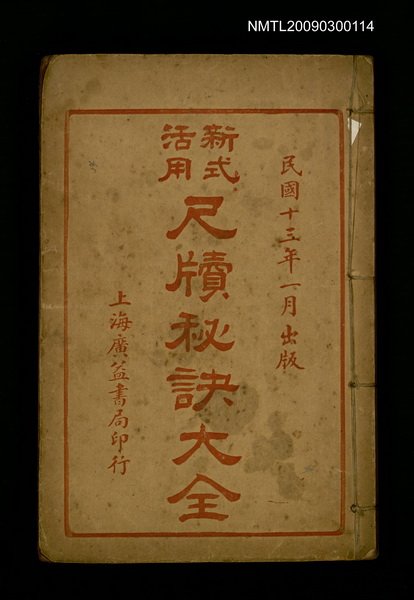 NMTL20090300114
民國十三年一月出版
新式
活用
尺牘秘訣大全
上海廣益書局印行